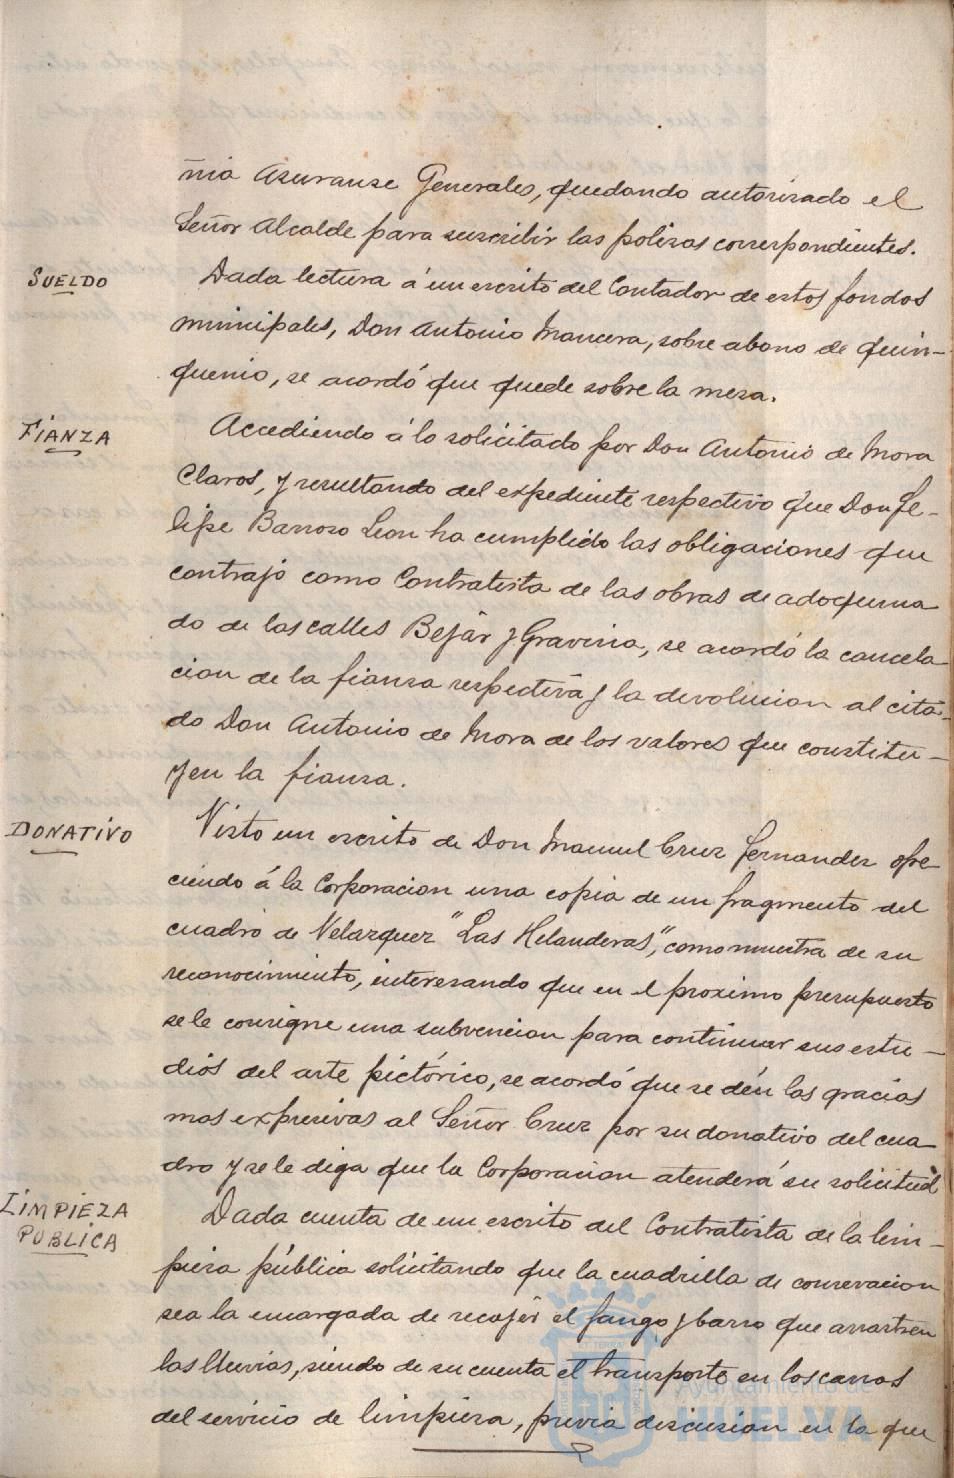 ñia Asuranse Generales, quedando autorizado el
Señor Alcalde para suscribir las polizas correspondientes.
SUELDO
Dada lectura á un escrito del Contador de estos fondos
municipales, Don Antonio Mancera, sobre abono de quin-
quenio, se acordó que quede sobre la mesa.
FIANZA
Accediendo á lo solicitado por Don Antonio de Mora
Claros, y resultando del expediente respectivo que Don Fe-
lipe Barroso Leon ha cumplido las obligaciones que
contrajo como Contratista de las obras de adoquina
do de las calles Bejár y Gravina, se acordó la cancela
cion de la fianza respectiva y la devolucion al cita-
do Don Antonio de Mora de los valores que constitu-
yen la fianza.
DONATIVO
Visto un escrito de Don Manuel Cruz Fernandez ofre
ciendo á la Corporacion una copia de un fragmento del
cuadro de Velazquez "Las Hilanderas", como muestra de su
reconocimiento, interesando que en el proximo presupuesto
se le consigne una subvencion para continuar sus estu-
dios del arte pictórico, se acordó que se dén las gracias
mas expresivas al Señor Cruz por su donativo del cua
dro y se le diga que la Corporacion atenderá su solicitud
LIMPIEZA
PUBLICA
Dada cuenta de un escrito del Contratista de la lim-
pieza pública solicitando que la cuadrilla de conservacion
sea la encargada de recojer el fango y barro que arrastren
las lluvias, siendo de su cuenta el transporte en los carros
del servicio de limpieza, previa discusion en la que
Ayuntamiento de
HUELVA